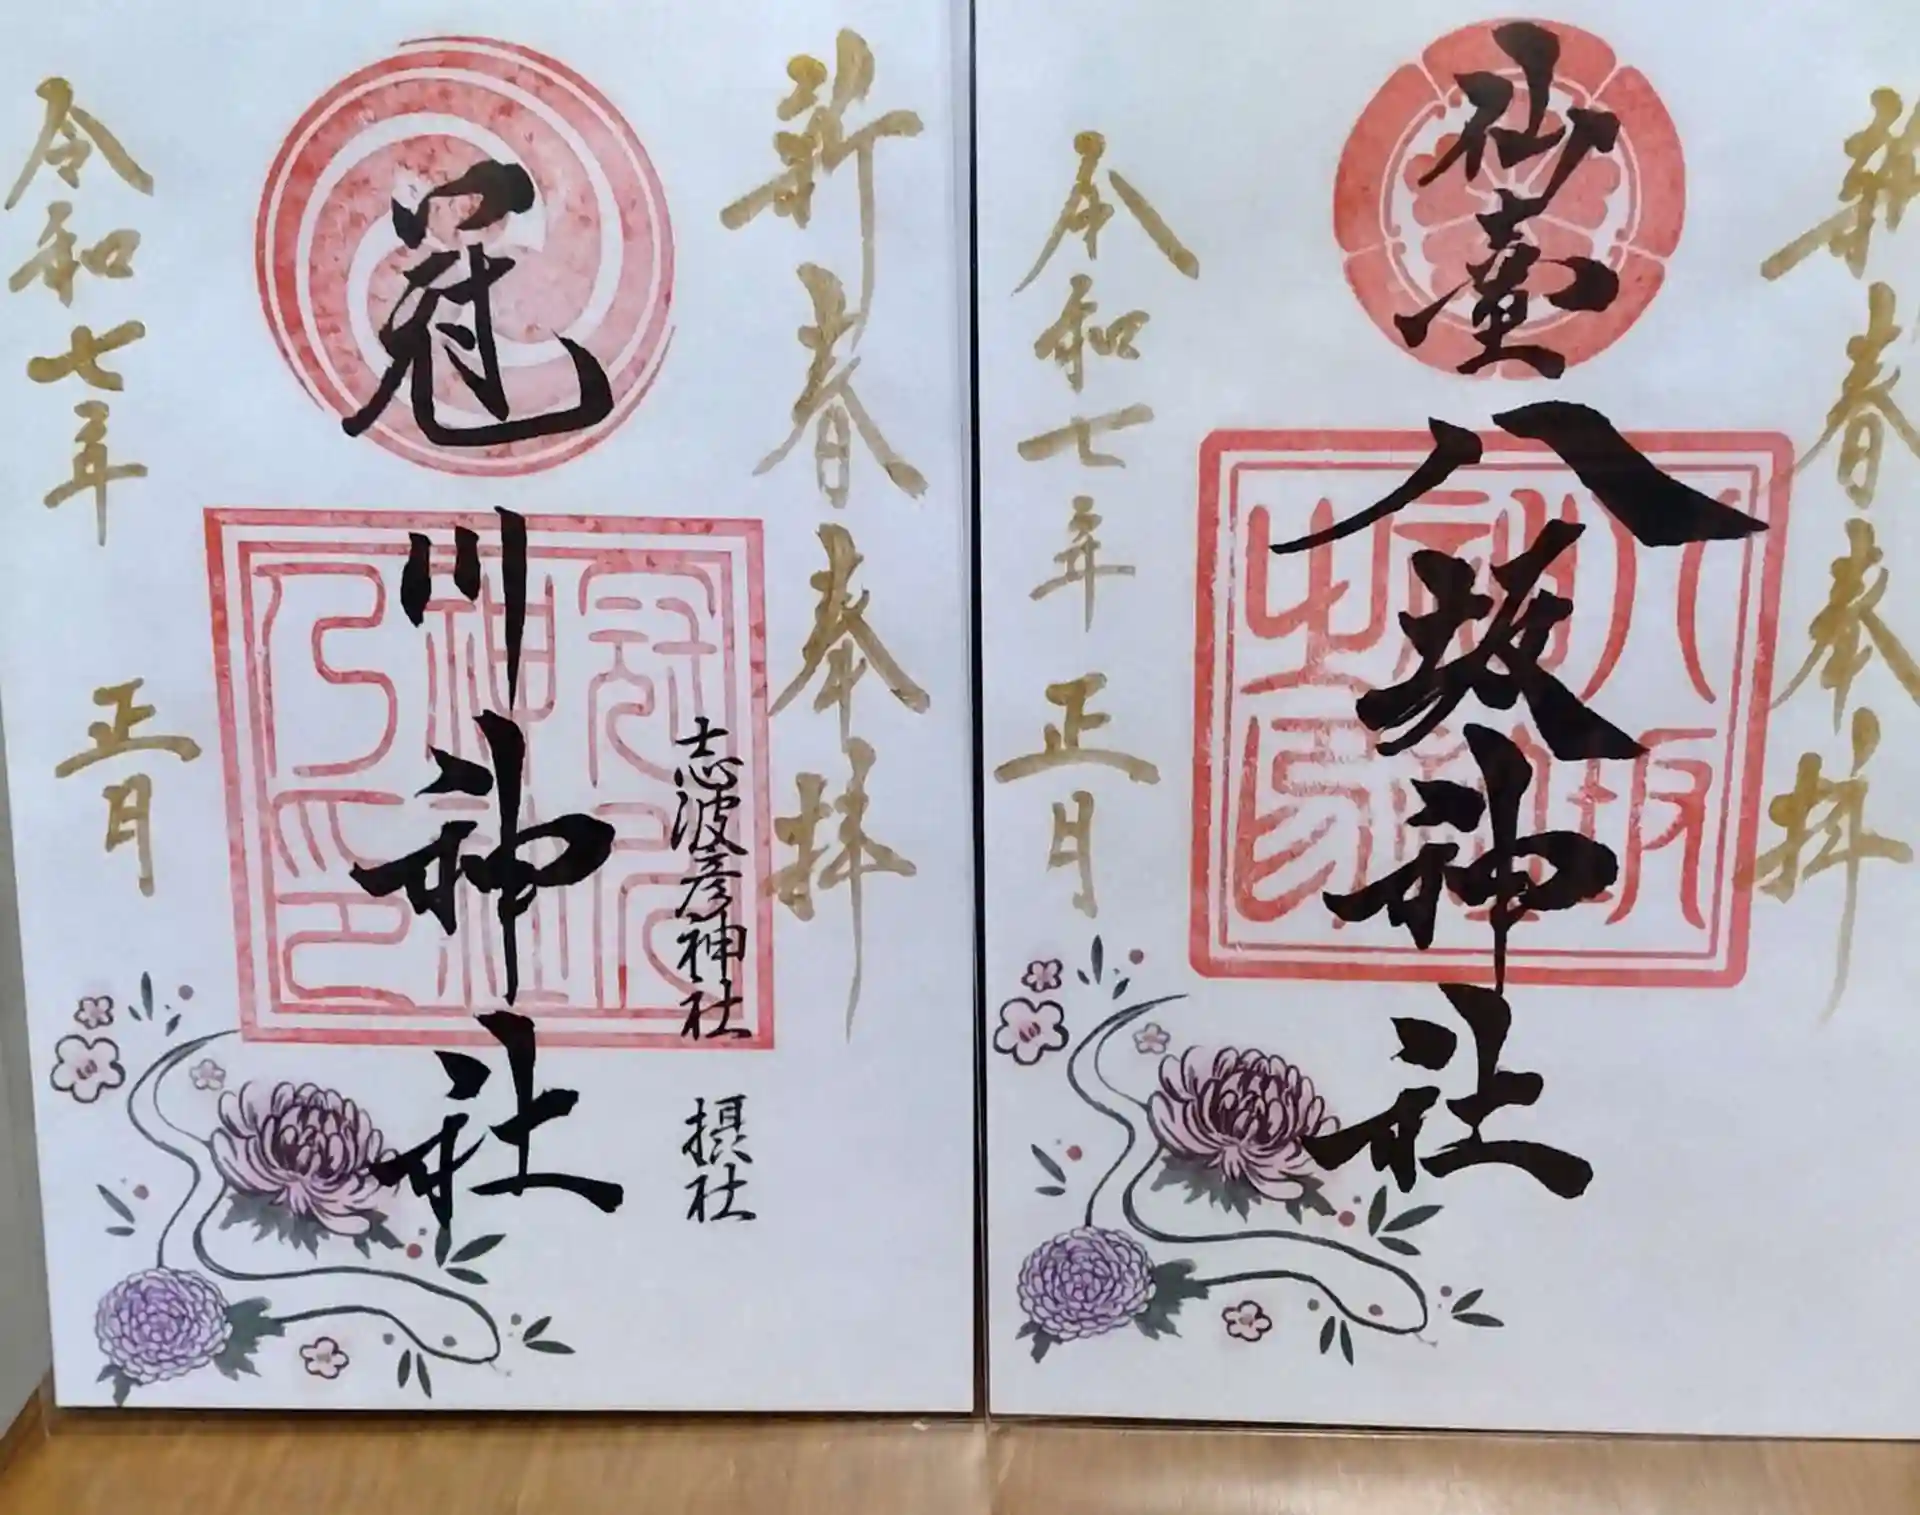 新春奉拝
冠川神社
志波彦神社 摂社
令和七年 正月
冠川
神社
乃印
新春奉拝
仙臺八坂神社
令和七年 正月
八坂